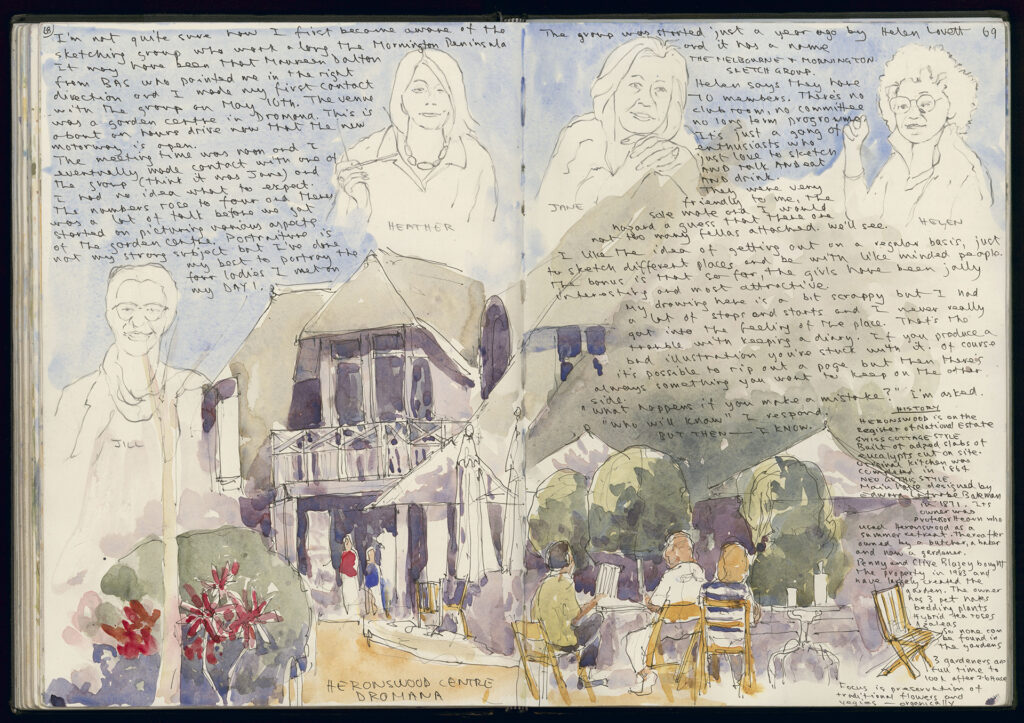 68
I'm not quite sure how I first became aware of the
sketching group who work along the Mornington Peninsala
It may have been that Maureen Dalton
from BAS who pointed me in the right
direction and I made my first contact
with the group on May 10th. The venue
was a garden centre in Dromana. This is
about an hours drive now that the new
motorway is open.
The meeting time was noon and I
eventually made contact with one of
the group (think it was Jane) and
I had no idea what to expect.
The numbers rose to four and there
was a lot of talk before we got
started on picturing various aspects
of the garden centre. Portraiture is
not my strong subject but I've done
my best to portray the
four ladies I met on
my DAY 1.
HEATHER
JILL
HERONSWOOD CENTRE
DROMANA
69
The group was started just a year ago by Helen Lovett
and it has a name
THE MELBOURNE & MORNINGTON
SKETCH GROUP.
Helen says they have
70 members. There's no
club room, no committee
no long term programme
It's just a gang of
enthusiasts who
just love to sketch
AND talk AND eat
AND drink.
They were very
friendly to me, the
sole male and I would
hazard a guess that there are
not too many fellas attached. We'll see.
JANE
HELEN
I like the idea of getting out on a regular basis, just
to sketch different places and be with like minded people.
The bonus is that so far, the girls have been jolly
interesting and most attractive.
My drawing here is a bit scrappy but I had
a lot of stops and starts and I never really
got into the feeling of the place. That's the
trouble with keeping a diary. If you produce a
bad illustration you're stuck with it. Of course
it's possible to rip out a page but then there's
always something you want to keep on the other
side.
"What happens if you make a mistake?" I'm asked.
"Who will know" I respond,
BUT THEN — I KNOW.
HISTORY
HERONSWOOD is on the
Register of National Estate
SWISS COTTAGE STYLE
Built of adzed slabs of
eucalypts cut on site.
Original kitchen was
completed in 1864
NEO GOTHIC STYLE
Main house designed by
Edward Latrobe Bateman
in 1871. Its
owner was
Professor Hearn who
used Heronswood as a
summer retreat. Thereafter
owned by a butcher, a baker
and now a gardener.
Penny and Clive Blazey bought
the property in 1983 and
have largely created the
garden. The owner
has 3 pet hates
bedding plants
Hybrid tea roses
Azaleas
So none can
be found in
the gardens
3 gardeners are
full time to
look after
Focus is preservation of
traditional flowers and
vegies — organically